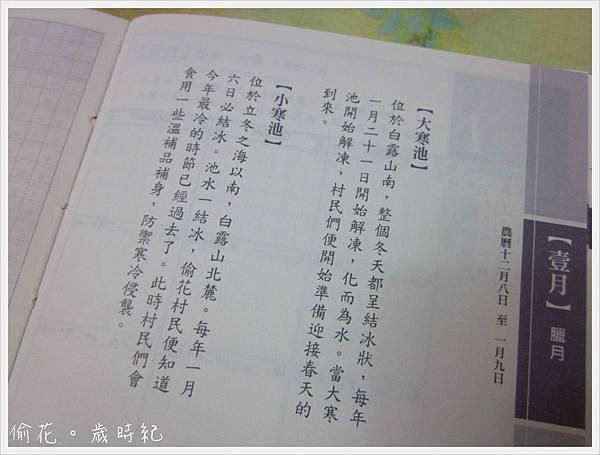 【壹月】臘月
農曆十二月八日 至 一月九日
【大寒池】
位於白露山南，整個冬天都呈結冰狀，每年
一月二十一日開始解凍，化而為水。當大寒
池開始解凍，村民們便開始準備迎接春天的
到來。
【小寒池】
位於立冬之海以南，白露山北麓。每年一月
六日必結冰。池水一結冰，偷花村民便知道
今年最冷的時節已經過去了。此時村民們會
食用一些溫補品補身，防禦寒冷侵襲。
偷花。歲時紀